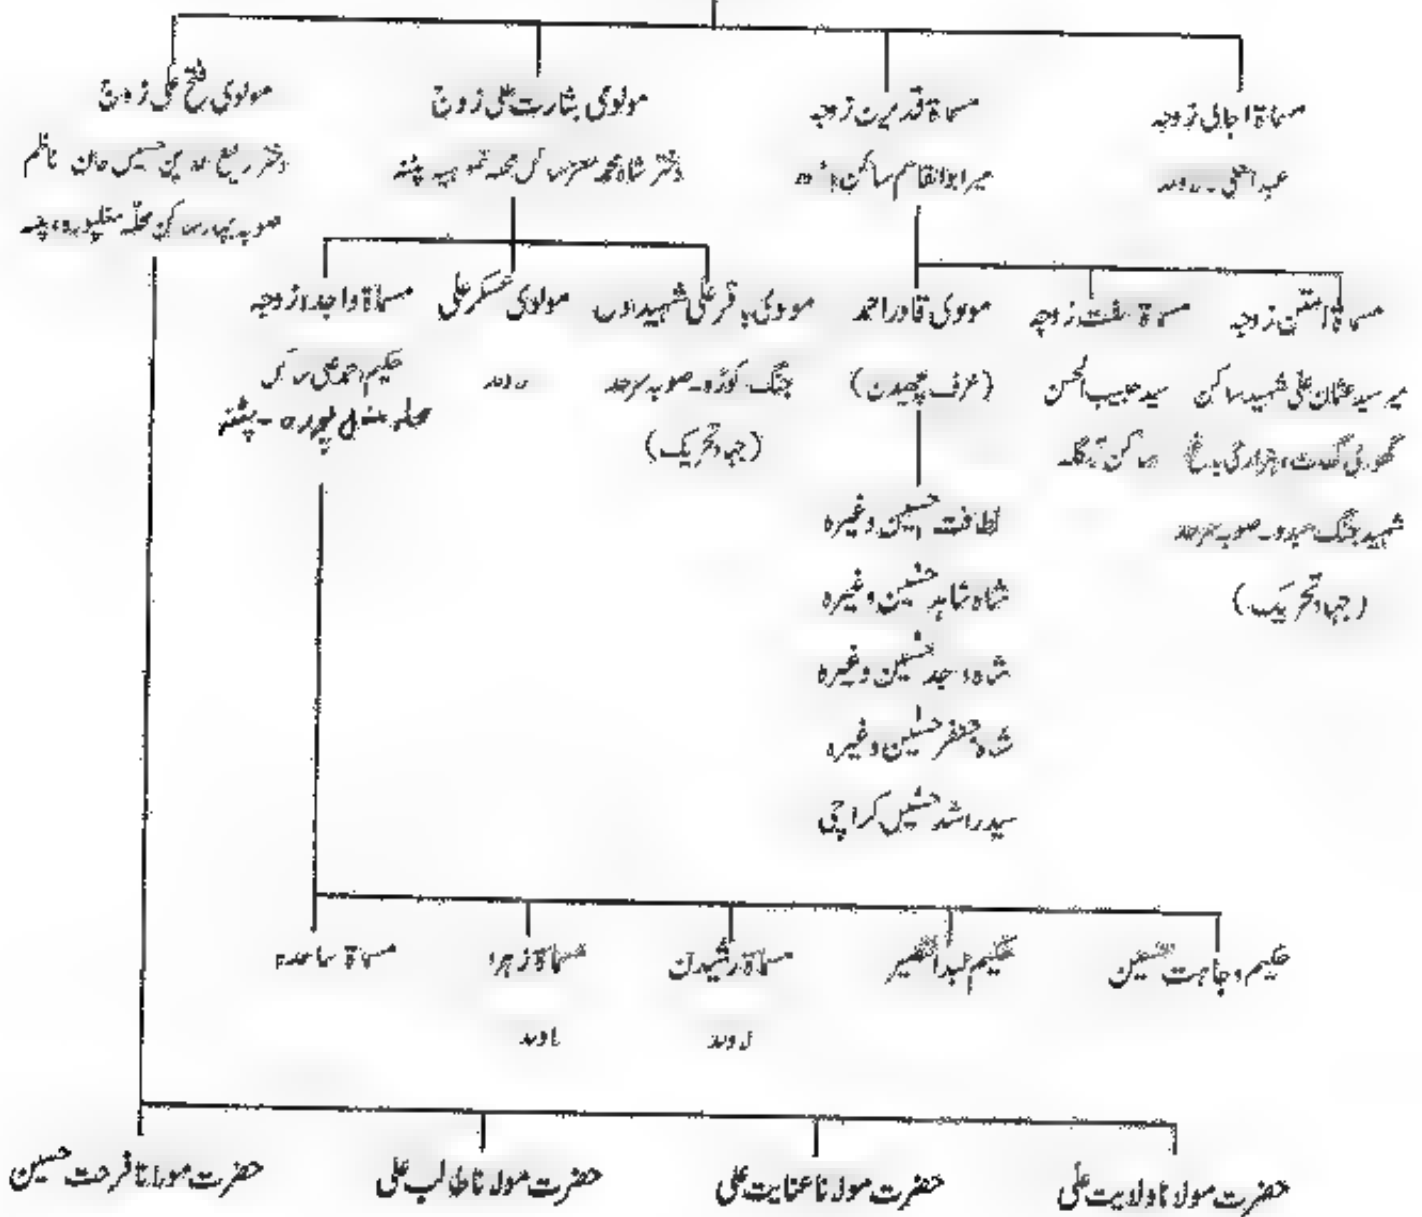 مسماۃ اجابی زوجہ
عبدالغنی۔ لاولد
مسماۃ قدیرن زوجہ
میر ابوالقاسم ساکن
مولوی بشارت علی زوج
دختر شاہ محمد معز ساکن محلہ نموہیہ پٹنہ
مولوی فتح علی زوج
دختر رفیع الدین حسین خان ناظم
صوبہ بہار ساکن محلہ مغلپورہ، پٹنہ
مسماۃ امتن زوجہ
میر سید عثمان علی شہید ساکن
ہزاری باغ
شہید جنگ صوبہ سرحد
(جہاد تحریک)
مسماۃ زوجہ
سید حبیب الحسن
ساکن
مولوی قادر احمد
(عرف چھیدن)
لطافت حسین وغیرہ
شاہ شاہد حسین وغیرہ
شاہ واجد حسین وغیرہ
شاہ جعفر حسین وغیرہ
سید راشد حسین کراچی
مولوی باقر علی شہید اول
جنگ کوڑہ۔ صوبہ سرحد
(جہاد تحریک)
مولوی عسکر علی
لاولد
مسماۃ واجدہ زوجہ
حکیم احمد علی ساکن
محلہ مغل پورہ - پٹنہ
حکیم وجاہت حسین
حکیم عبدالنصیر
مسماۃ رشیدن
لاولد
مسماۃ زہرا
لاولد
مسماۃ ساجدہ
حضرت مولانا ولایت علی
حضرت مولانا عنایت علی
حضرت مولانا طالب علی
حضرت مولانا فرحت حسین